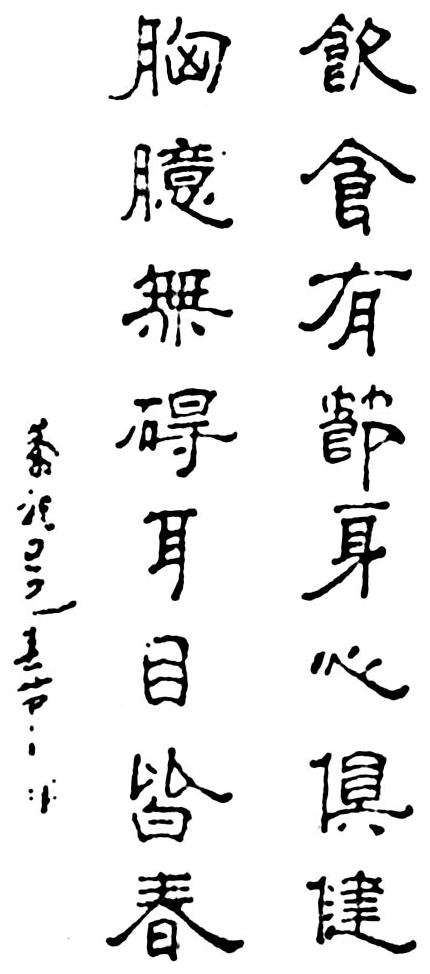 飲食有節身心俱健
胸臆無碍耳目皆春